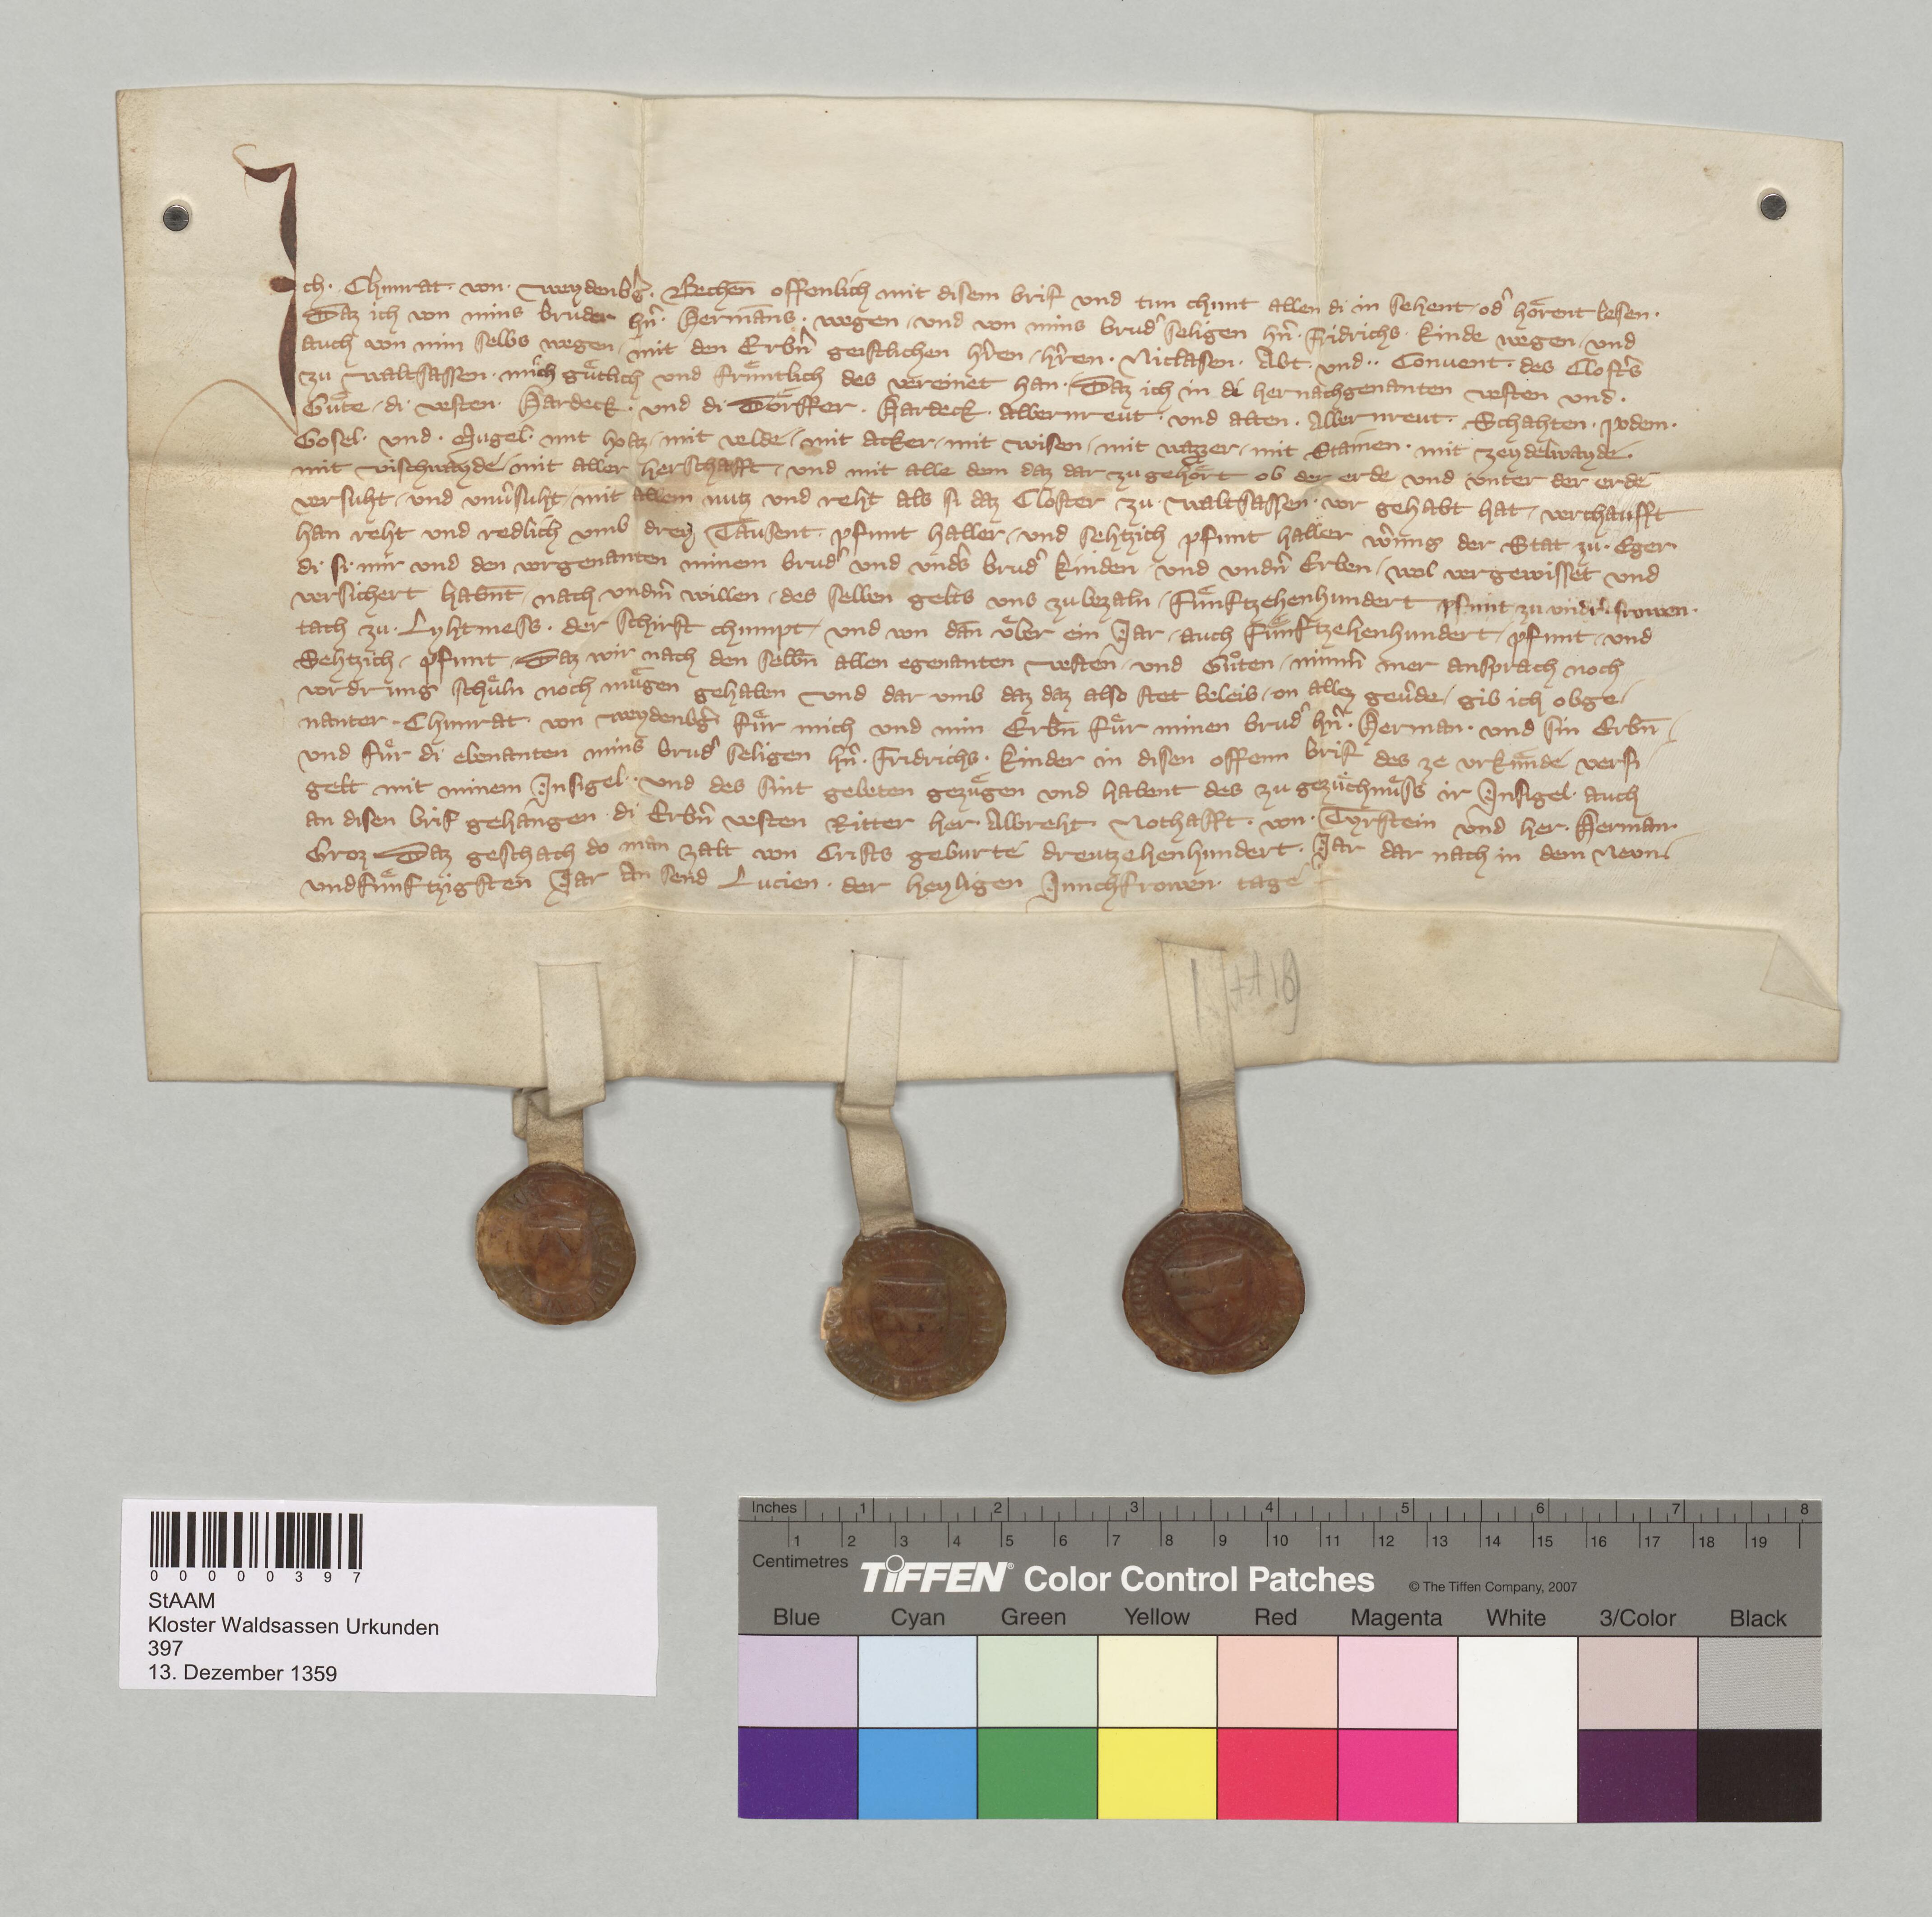 Ich · Chunrat · von · Weydenbg̃ · Vechen̄ offenlich mit disem brif vnd tun chunt allen di in sehent · od᾽ hoͤrent lesen ·
Daz ich von mins bruder hn̄ · Herman̄s · wegen / vnd von mins brud᾽ seligen hn̄ · Fridrichs · kinde wegen / vnd
auch von min selbs wegen / mit den Erbn̄ geistlichen hr̄en / hr̄en · Niclasen · Abt · vnd ·· Conuent · des Clost᾽s
zu Waltsassen · mich guͤtlich vnd fruͤntlich des vereinet han · Daz ich in di hernachgenanten vesten vnd ·
Guͤte / di vesten · Hardeck · vnd di Doͤrffer · Hardeck · Albernreut · vnd alten · Albernreut · Schahten · podem ·
Gosel · vnd · Mugel · mit holtz / mit velde / mit acker / mit wisen / mit wazzer / mit Stainen · mit zeydelwayde ·
mit vischwayde / mit aller herschafft / vnd mit alle dem daz dar zu gehoͤrt ob der erde vnd vnter der erde
versuht / vnd vnu᾽suht / mit allem nutz vnd reht als si daz Closter zu · Waltsassen · vor gehabt hat / verchaufft
han reht vnd redlich vmb drey Tausent · pfunt haller / vnd sehtzich pfunt haller w᾽ung der Stat zu · Eger ·
di · si · mir vnd den vorgenanten minem brud᾽ vnd vnd᾽s brud᾽ kinden / vnd vndn̄ Erben / wol vergewisset vnd
versichert habnt̄ / nach vndm̄ willen / des selben gelts vns zu bezaln / Fuͤnftzehenhundert pfunt zu vnd᾽r · frowen ·
tach zu · Lyhtmess · der schirst chumpt / vnd von dan̄ uͤber ein Jar / auch Fuͤnftzehenhundert / pfunt / vnd
Sehtzich / pfunt / Daz wir nach den selbn̄ allen egenanten vesten / vnd Guͦten / nimm᾽ mer ansprach noch
vordrung schuͤln noch muͤgen gehaben vnd dar vmb daz daz also stet beleib / on allez geu᾽de / gib ich obge /
nanter · Chunrat · von Weydenbg̃ fuͤr mich vnd min Erbn̄ fuͤr minen brud᾽ hn̄ · Herman · vnd sin Erbn̄ /
vnd fuͤr di ebenanten mins brud᾽ seligen hn̄ · Fridrichs · kinder in disen offenn brif des ze vrkuͤnde versi /
gelt mit minem Insigel · vnd des sint gebeten gezuͤgen vnd habent des zu gezuͤchnuͤss ir Insigel auch
an disen brif gehangen di Erbn̄ vesten Ritter her · Albreht · Nothafft · von · Tyrstein vnd her · Herman ·
Groz · Daz geschach do man zalt von Crists geburte dreutzehenhundert · Jar dar nach in dem Neun /
vndfuͤnftzigsten Jar an send Lucien · der heyligen Junchfrowen · tage
00000397
StAAM
Kloster Waldsassen Urkunden
397
13. Dezember 1359
Inches 1 2 3 4 5 6 7 8
1 2 3 4 5 6 7 8 9 10 11 12 13 14 15 16 17 18 19
Centimetres
TIFFEN® Color Control Patches © The Tiffen Company, 2007
Blue Cyan Green Yellow Red Magenta White 3/Color Black